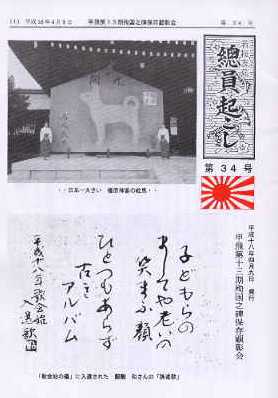 (1) 平成18年4月9日
甲飛第13期殉国之碑保存顕彰会
第34号
總員起こし
第34号
・・日本一大きい 橿原神宮の絵馬・・
平成十八年四月九日
甲飛第十三期殉国之碑保存顕彰会
子どもらの
ましてや老いの
笑まふ顔
ひとつもあらず
古きアルバム
平成十八年歌会始
入選歌
「歌会始の儀」に入選された
和さんの「誄道歌」